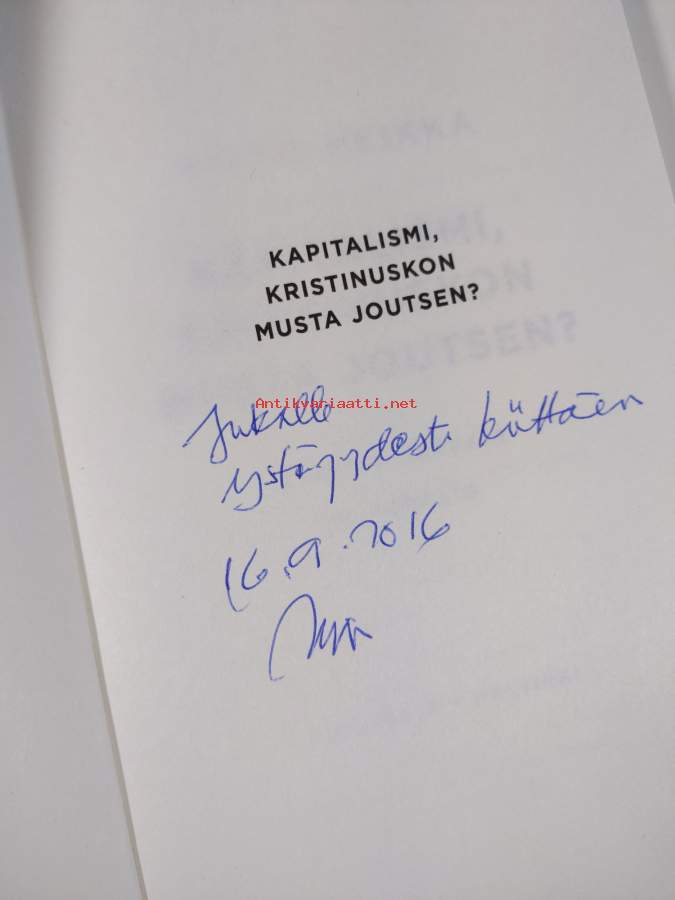 KAPITALISMI,
KRISTINUSKON
MUSTA JOUTSEN?
Antikvariaatti.net
Jukalle
ystävyydestä kiittäen
16.9.2016